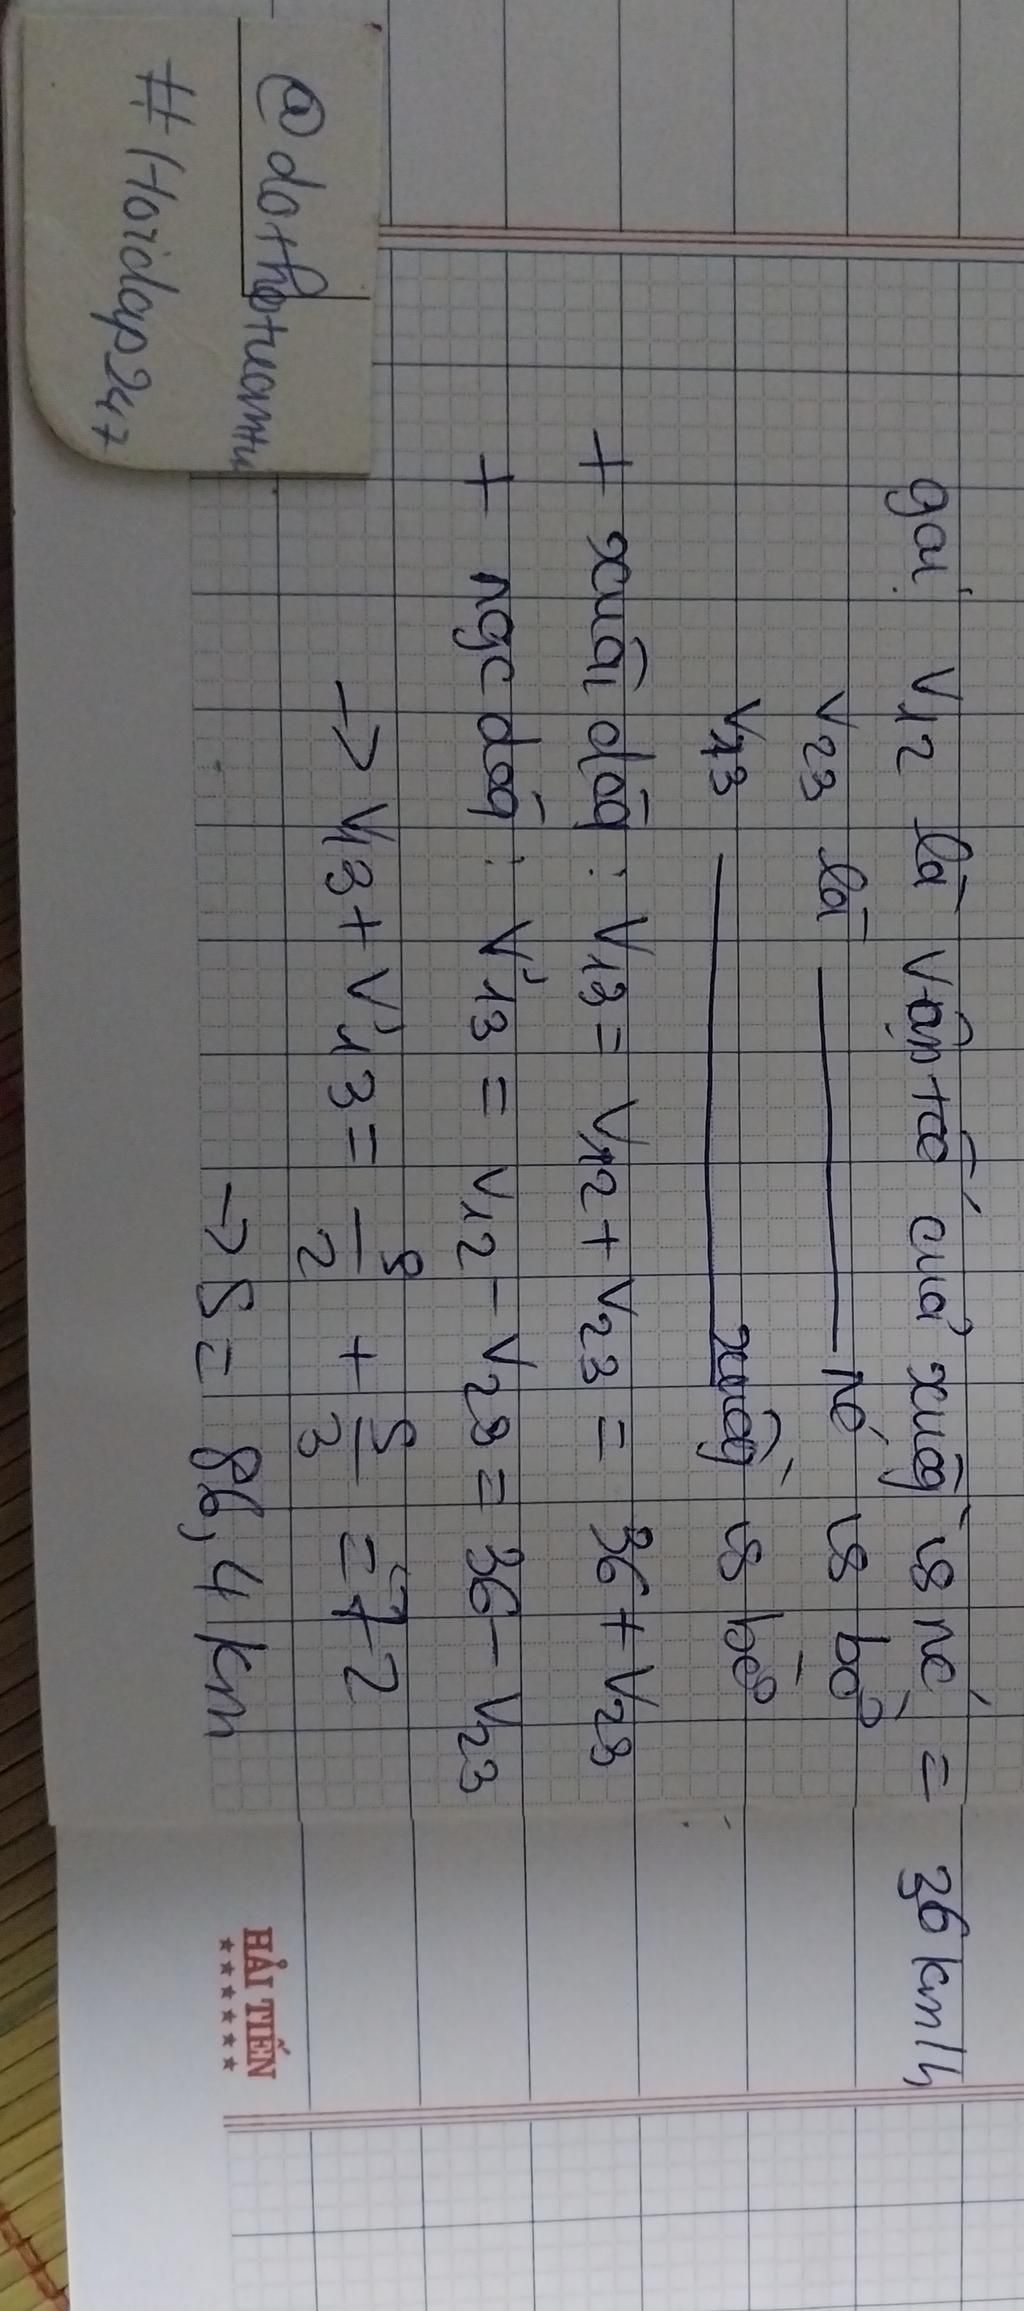 gọi V12 là vận tốc của xuồg vs nc = 36 km/h
V23 là ——— nc vs bờ
V13 ——— xuồg vs bờ
+ xuôi dòg : V13 = V12 + V23 = 36 + V23
+ ngc dòg : V'13 = V12 - V23 = 36 - V23
-> V13 + V'13 = S/2 + S/3 = 72
-> S = 86,4 km
@dothotuantu
#Hoidap247
HẢI TIẾN
★★★★★★★